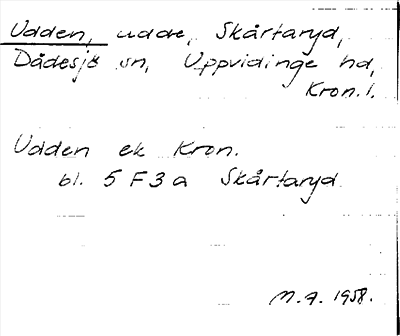 Udden, udde, Skårtaryd,
Dädesjö sn, Uppvidinge hd,
Kron. l.
Udden ek Kron.
bl. 5 F 3 a Skårtaryd
M. A. 1958.